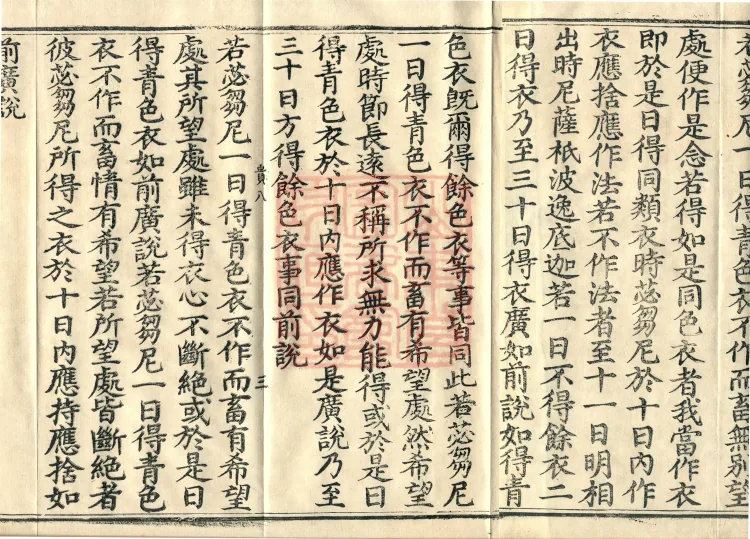 若苾芻尼一日得青色衣不作而畜無別望
處便作是念若得如是同色衣者我當作衣
即於是日得同類衣時苾芻尼於十日內作
衣應捨應作法若不作法者至十一日明相
出時尼薩祇波逸底迦若一日不得餘衣二
日得衣乃至三十日得衣廣如前說如得青
色衣既爾得餘色衣等事皆同此若苾芻尼
一日得青色衣不作而畜有希望處然希望
處時節長遠不稱所求無力能得或於是日
得青色衣於十日內應作衣如是廣說乃至
三十日方得餘色衣事同前說
貴八 三
若苾芻尼一日得青色衣不作而畜有希望
處其所望處雖未得衣心不斷絕或於是日
得青色衣如前廣說若苾芻尼一日得青色
衣不作而畜情有希望若所望處皆斷絕者
彼苾芻尼所得之衣於十日內應持應捨如
前廣說